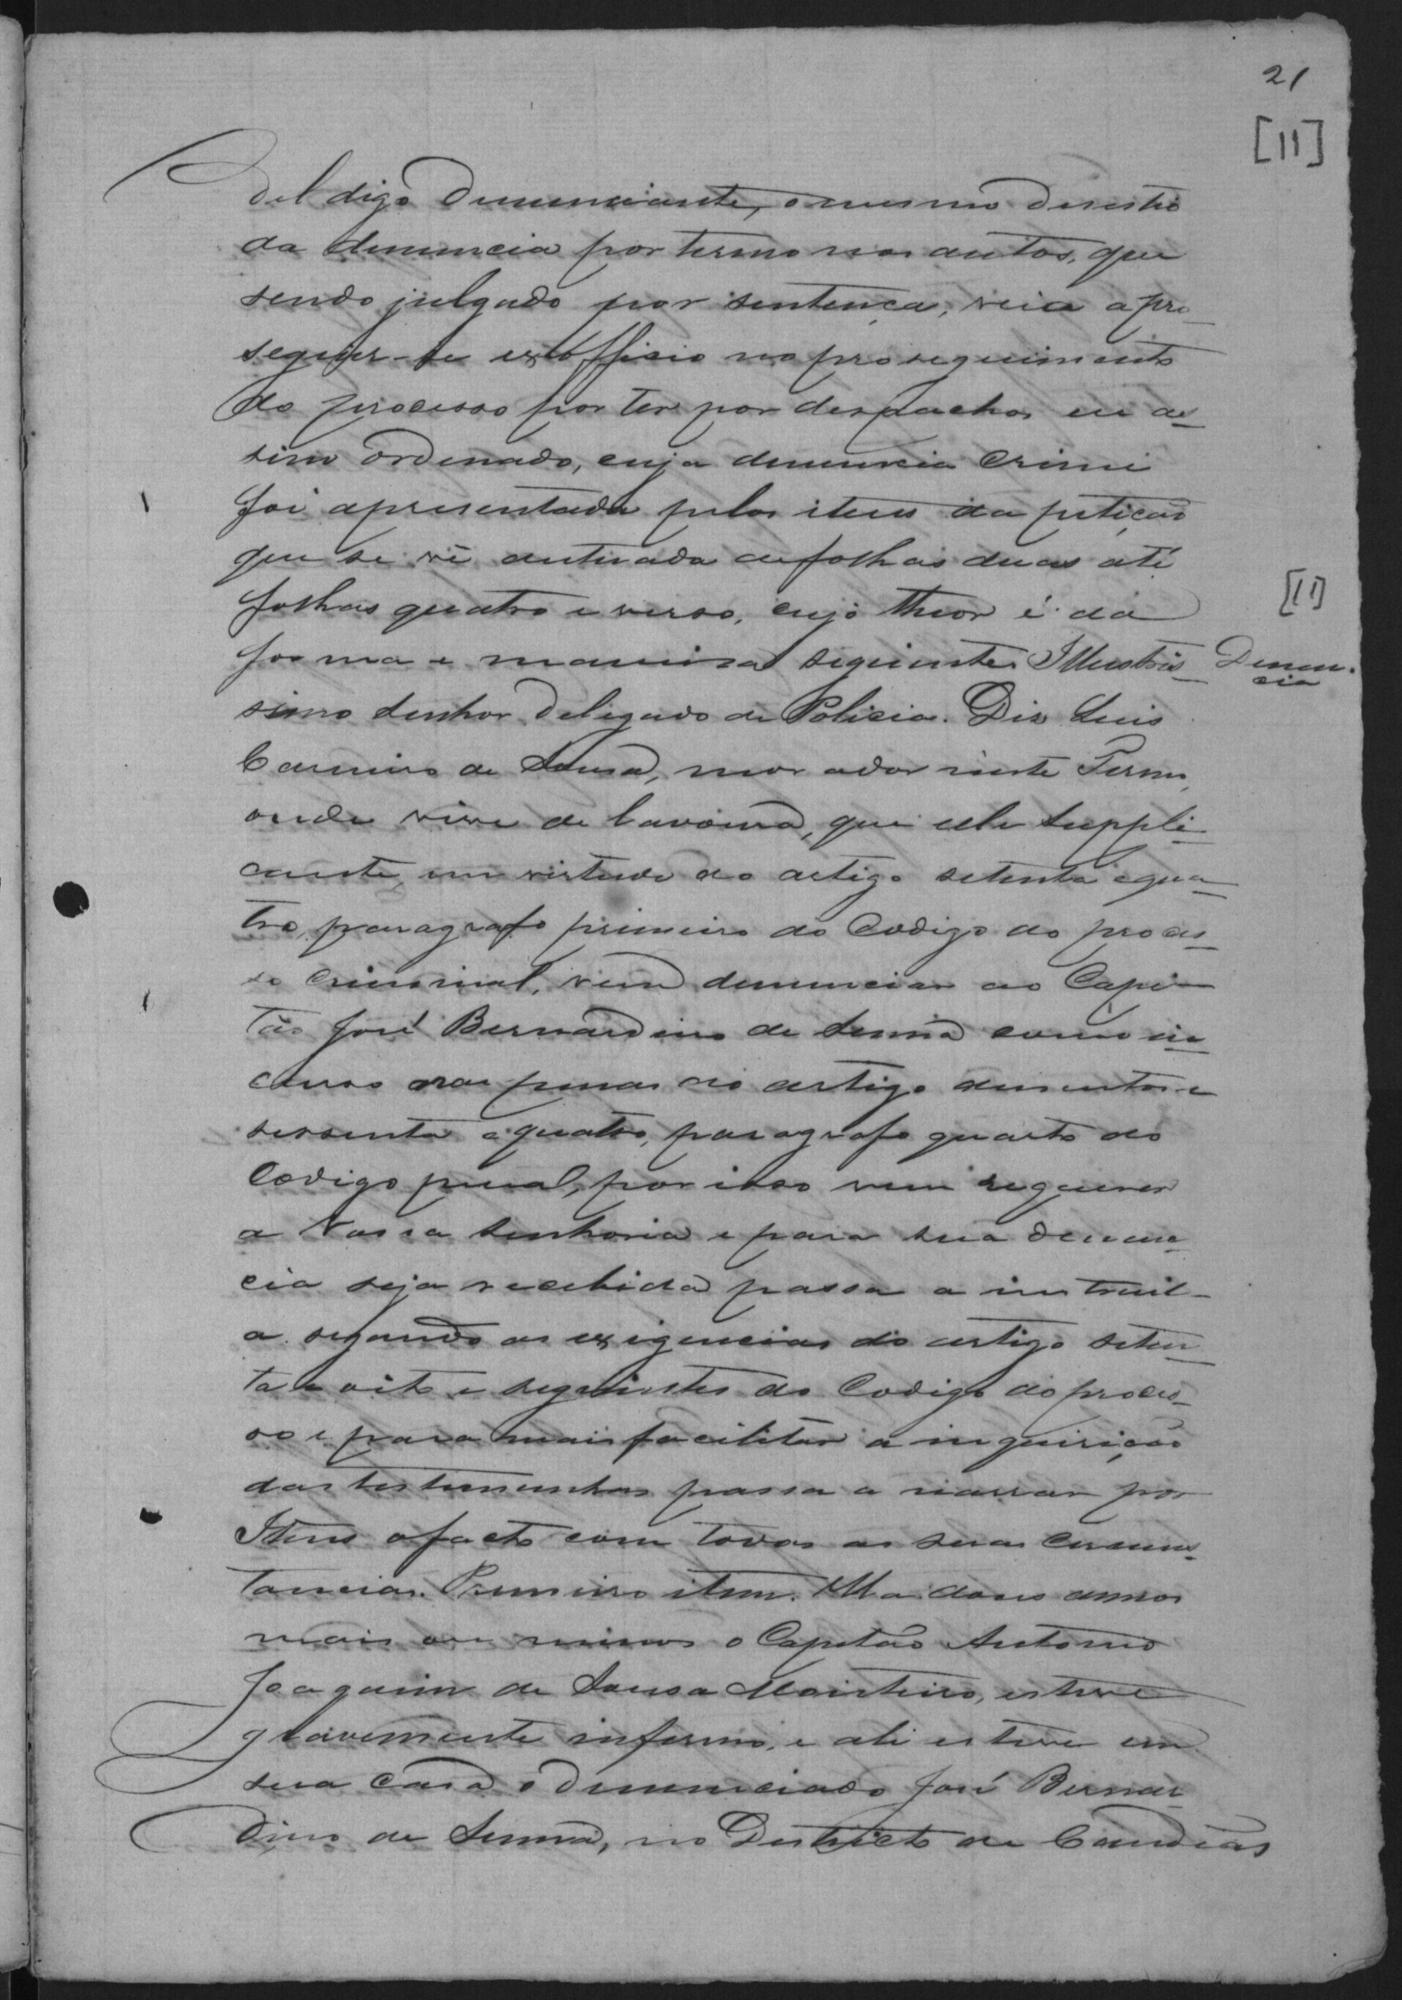 21
[11]
del digo Denunciante, o mesmo desistio
da denuncia por termo nos autos, que
sendo julgado por sentença, veio a pro-
seguir-se ex officio no proseguimento
do processo por ter por despachos eu as-
sim ordenado, cuja denuncia crime
foi apresentada pelos itens da petição
que se vê autuada de folhas duas até
folhas quatro e verso, cujo theor é da
[11]
forma e maneira seguinte: Illustris-
Denun-
cia
simo Senhor Deligado de Policia. Diz Luis
Carneiro de Sousa, morador neste Termo,
onde vive de lavoura, que elle Suppli-
cante, em virtude do artigo setenta e qua-
tro, paragrafo primeiro do Codigo do proces-
so criminal, vem denunciar ao Capi-
tão José Bernardino de Senna como in-
curso nas penas do artigo dusentos e
sessenta e quatro, paragrafo quarto do
Codigo penal, por isso vem requerer
a Vossa Senhoria e para sua denun-
cia seja recebida passa a instruil-
a segundo as exigencias do artigo seten-
ta e oito e seguintes do Codigo do proces-
so e para mais facilitar a inquirição
das testemunhas passa a narrar por
Itens o facto com todas as suas circuns-
tancias. Primeiro item. Ha dous annos
mais ou menos o Capitão Antonio
Joaquim de Sousa Monteiro, esteve
gravemente infermo, e ali esteve em
sua casa o denunciado José Bernar-
dino de Senna, no Districto de Candeas